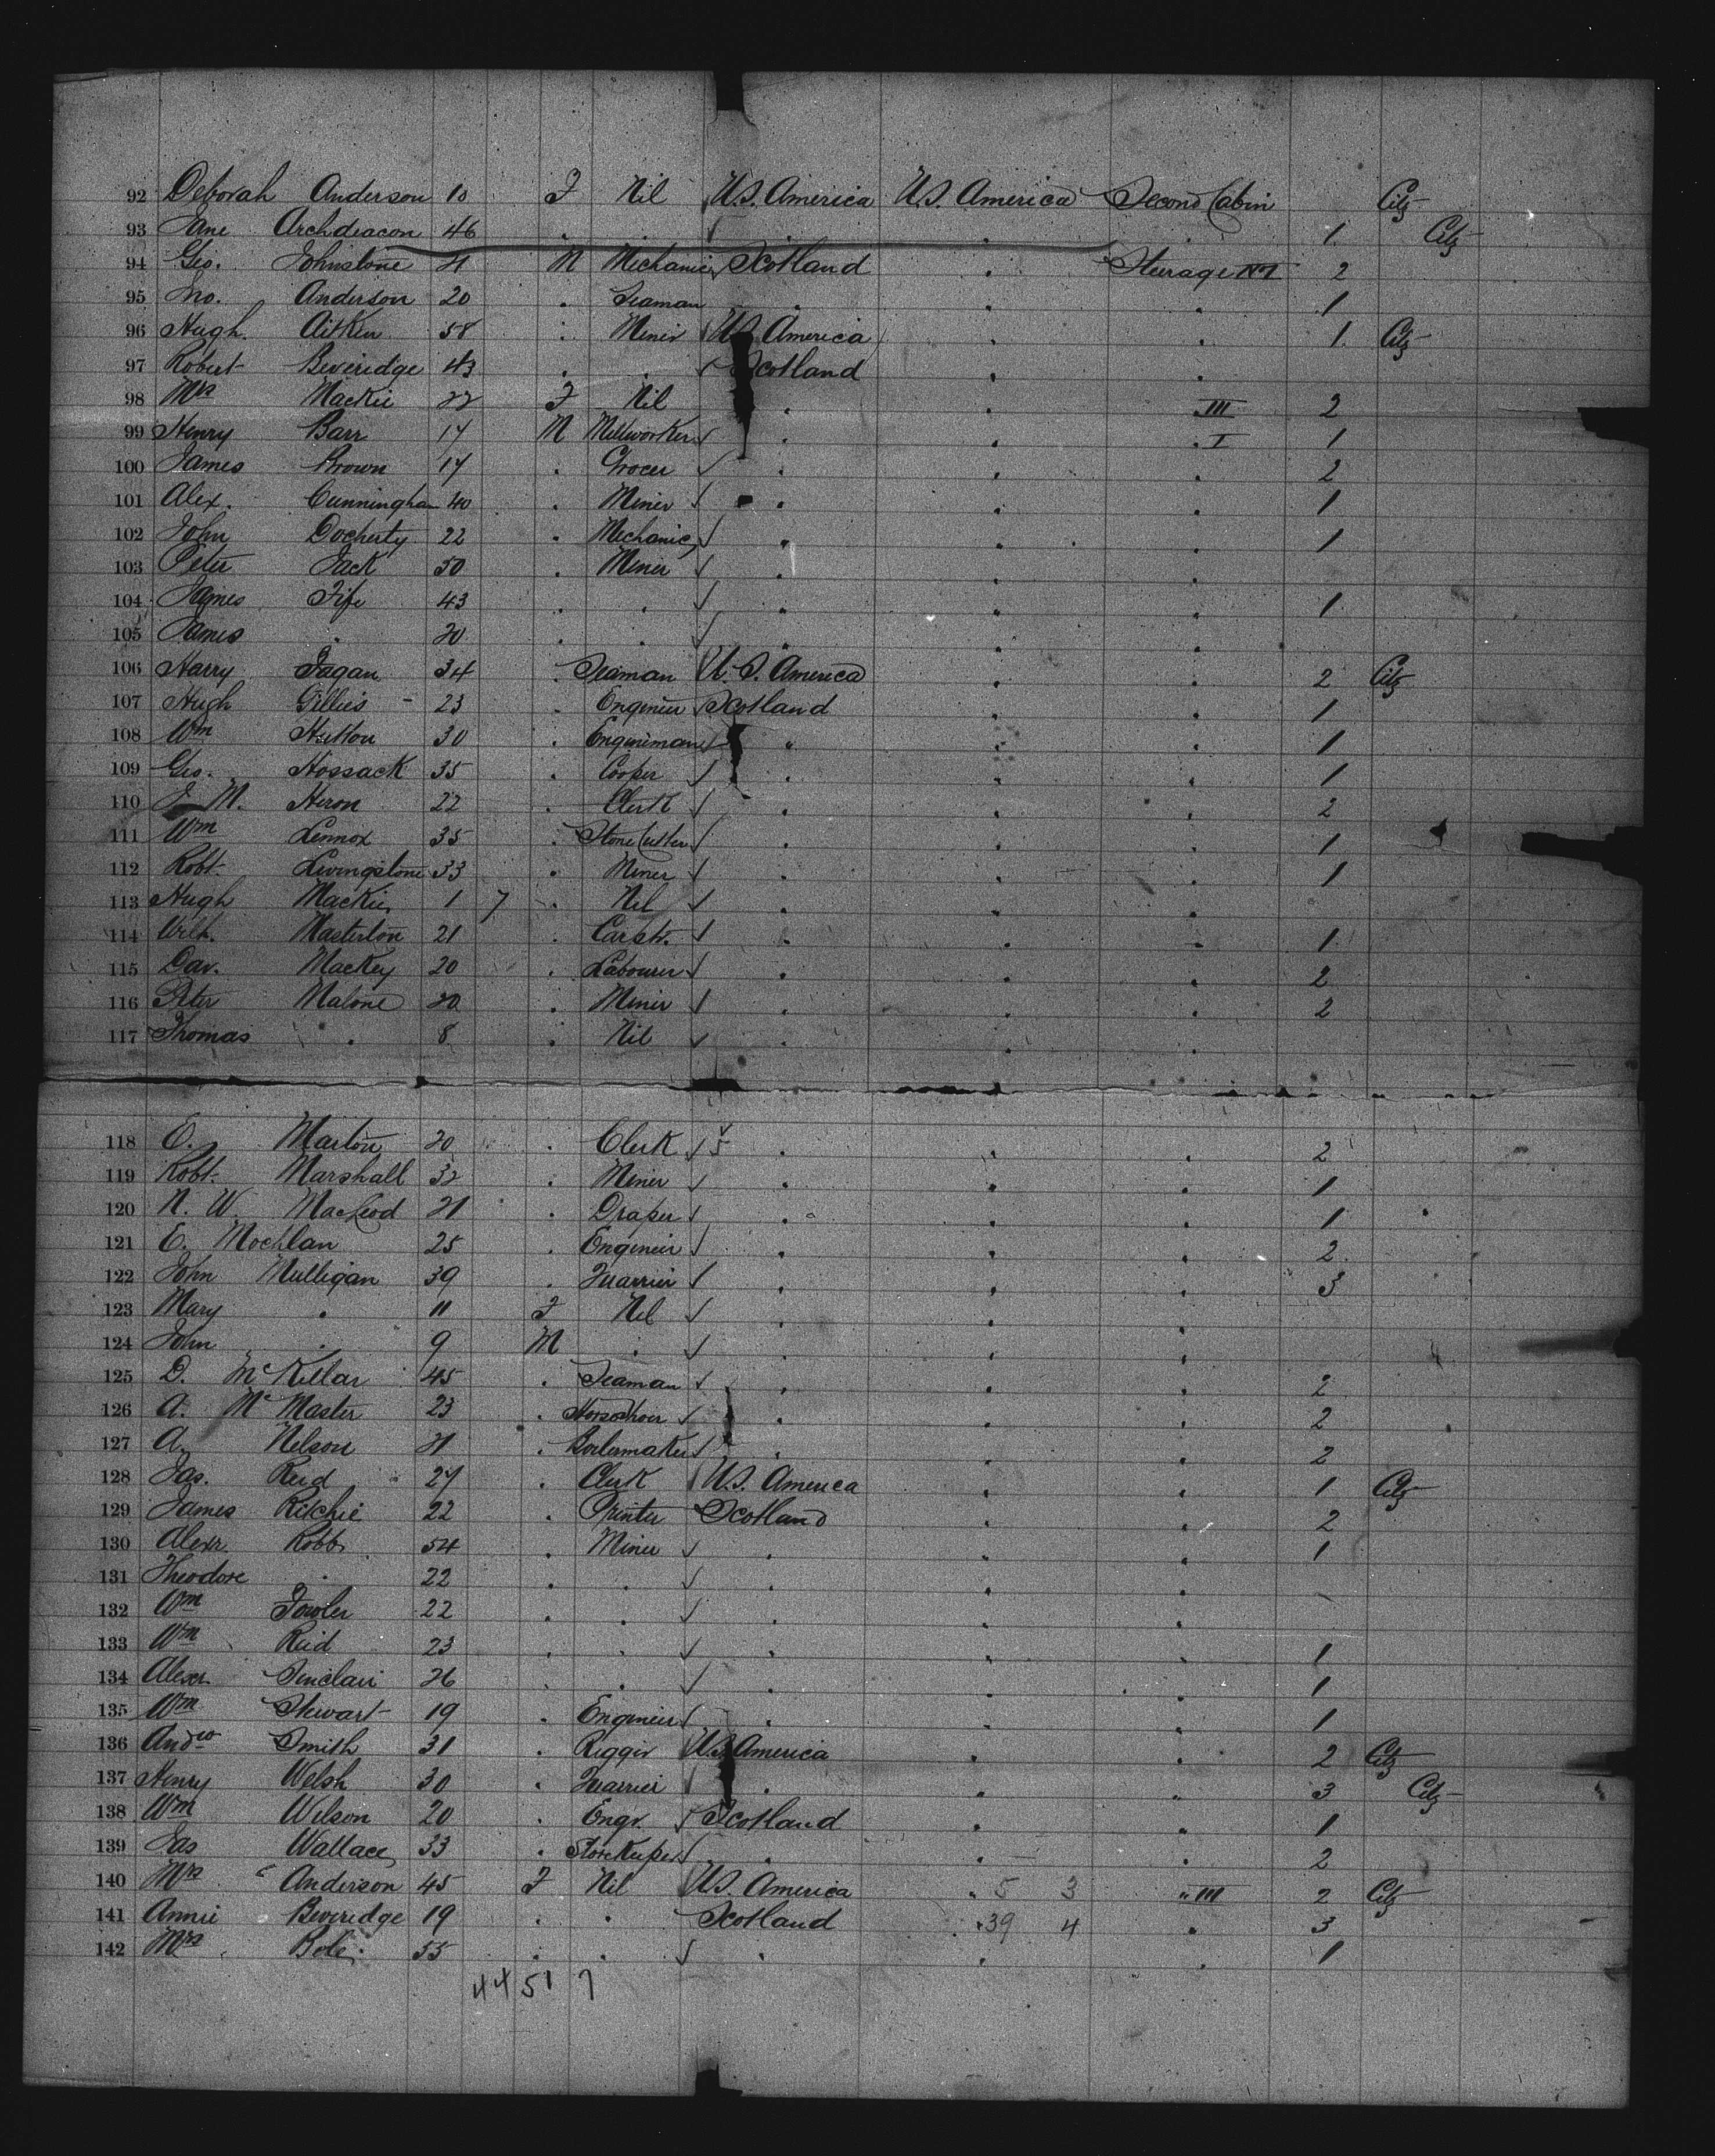 92 Deborah Anderson 10 F Nil U.S. America U.S. America Second Cabin Citz
93 Jane Archdeacon 46 . . . . . 1 Citz
94 Geo. Johnstone 21 M Mechanic Scotland . Steerage 2
95 Jno. Anderson 20 . Seaman . . . 1
96 Hugh Aitken 58 . Miner U.S. America . . 1 Citz
97 Robert Beveridge 43 . . Scotland . .
98 Mrs Mackie 22 F Nil . . III 2
99 Henry Barr 17 M Millworker . . . I 1
100 James Brown 17 . Grocer . . . 2
101 Alex. Cunningham 40 . Miner . . . 1
102 John Docherty 22 . Mechanic . . . 1
103 Peter Jack 50 . Miner . . .
104 James Fife 43 . . . . . 1
105 James . 20 . . . . .
106 Harry Fagan 34 . Seaman U.S. America . . 2 Citz
107 Hugh Gillies - 23 . Engineer Scotland . . 1
108 Wm Hutton 30 . Engineman . . . 1
109 Geo. Hossack 35 . Cooper . . . 1
110 J. M. Heron 22 . Clerk . . . 2
111 Wm Lennox 35 . Stone Cutter . . . 1
112 Robt. Livingstone 33 . Miner . . . 1
113 Hugh Mackie 1 7 . Nil . . .
114 Masterton 21 . Carptr. . . . 1
115 Dav. Mackey 20 . Labourer . . . 2
116 Peter Malone 20 . Miner . . . 2
117 Thomas . 8 . Nil . . .
118 E. Martin 20 . Clerk . . . 2
119 Robt. Marshall 32 . Miner . . 1
120 N. W. MacLeod 21 . Draper . . . 1
121 E. Mochlan 25 . Engineer . . . 2
122 John Mulligan 39 . Quarrier . . . 3
123 Mary . 11 F Nil . . .
124 John . 9 M . . . .
125 D. McKellar 45 . Seaman . . . 2
126 A. McMaster 23 . Horseshoer . . . 2
127 A. Nelson 21 . Boilermaker . . . 2
128 Jas. Reid 27 . Clerk U.S. America . . 1 Citz
129 James Ritchie 22 . Printer Scotland . . 2
130 Alexr. Robb 54 . Miner . . . 1
131 Theodore . 22 . . . . .
132 Wm Fowler 22 . . . . .
133 Wm Reid 23 . . . . . 1
134 Alexr Sinclair 26 . . . . . 1
135 Wm Stewart 19 . Engineer . . . 1
136 Andw Smith 31 . Rigger U.S. America . . 2 Citz
137 Henry Welsh 30 . Quarrier . . . 3 Citz
138 Wm Wilson 20 . Engr. Scotland . . 1
139 Jas Wallace 33 . Storekeeper . . . 2
140 Mrs Anderson 45 F Nil U.S. America . 5 3 " III 2 Citz
141 Annie Beveridge 19 . . Scotland . 39 4 . 3
142 Mrs. Bole. 55 . . . . . 1
44 51 7